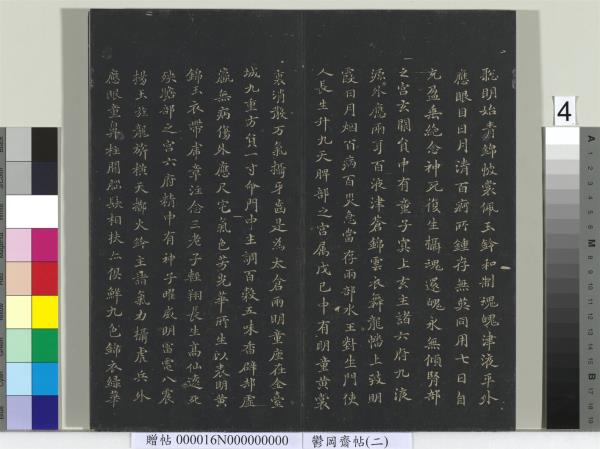 聦明始青錦帔裳佩玉鈴和制魂魄津液平外
應眼目日月清百痾所鍾存無英同用七日自
充盈無絶念神死復生攝魂還魄永無傾腎部
之宮玄闕員中有童子冥上玄主諸六府九液
源外應兩耳百液津蒼錦雲衣舞龍幡上致明
霞日月烟百病百灾急當存兩部水王對生門使
人長生升九天脾部之宮属戊己中有明童黄裳
裏消散万氣攝牙齒是為太倉兩明童座在金臺
城九重方員一寸命門中主調百穀五味香辟却虛
羸無病傷外應尺宅氣色芳光華所生以表明黄
錦玉衣帶虎章注念三老子輕翔長生高仙遠死
殃膽部之宮六府精中有神子曜威明雷電八震
揚玉旌龍旂橫天擲火鈴主諸氣力攝虎兵外
應眼童鼻柱間腦髮相扶亦俱鮮九色錦衣綠華
4
贈帖 000016N000000000 鬱岡齋帖(二)